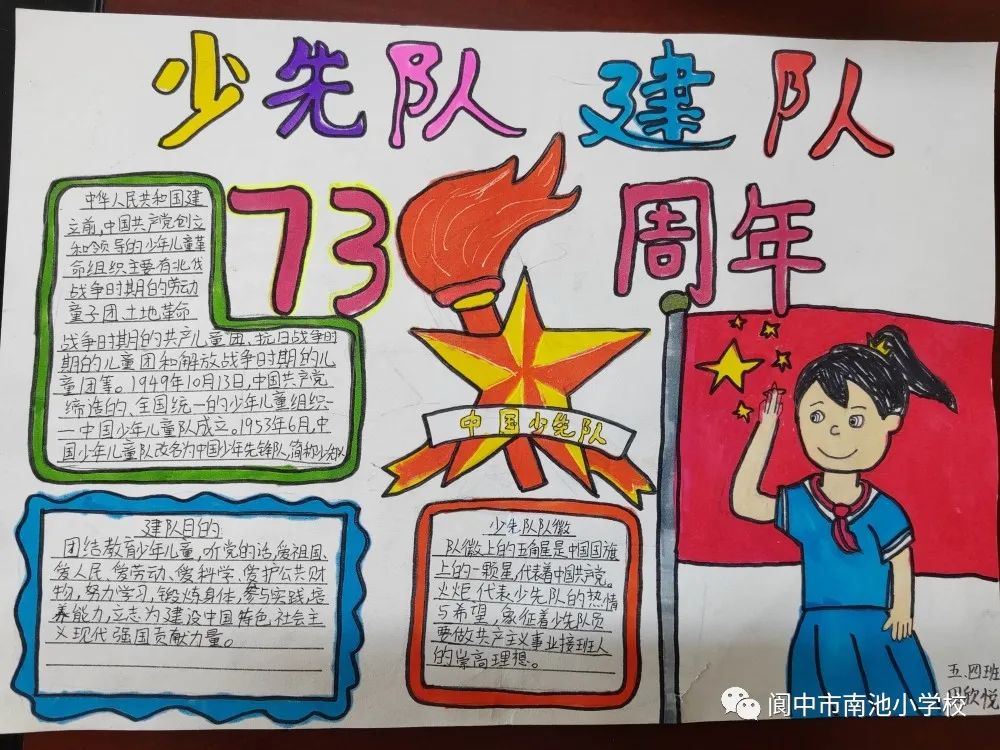 少先队 建队
73 周年
中华人民共和国建
立前,中国共产党创立
和领导的少年儿童革
命组织主要有北伐
战争时期的劳动
童子团、土地革命
战争时期的共产儿童团、抗日战争时
期的儿童团和解放战争时期的儿
童团等。1949年10月13日,中国共产党
缔造的、全国统一的少年儿童组织—
—中国少年儿童队成立。1953年6月,中
国少年儿童队改名为中国少年先锋队,简称少先队
中国少先队
建队目的
团结教育少年儿童,听党的话,爱祖国、
爱人民、爱劳动、爱科学、爱护公共财
物,努力学习,锻炼身体,参与实践,培
养能力,立志为建设中国特色社会主
义现代强国贡献力量。
少先队队徽
队徽上的五角星是中国国旗
上的一颗星,代表着中国共产党。
火炬代表少先队的热情
与希望,象征着少先队员
要做共产主义事业接班人
的崇高理想。
五.四班
欣悦
阆中市南池小学校